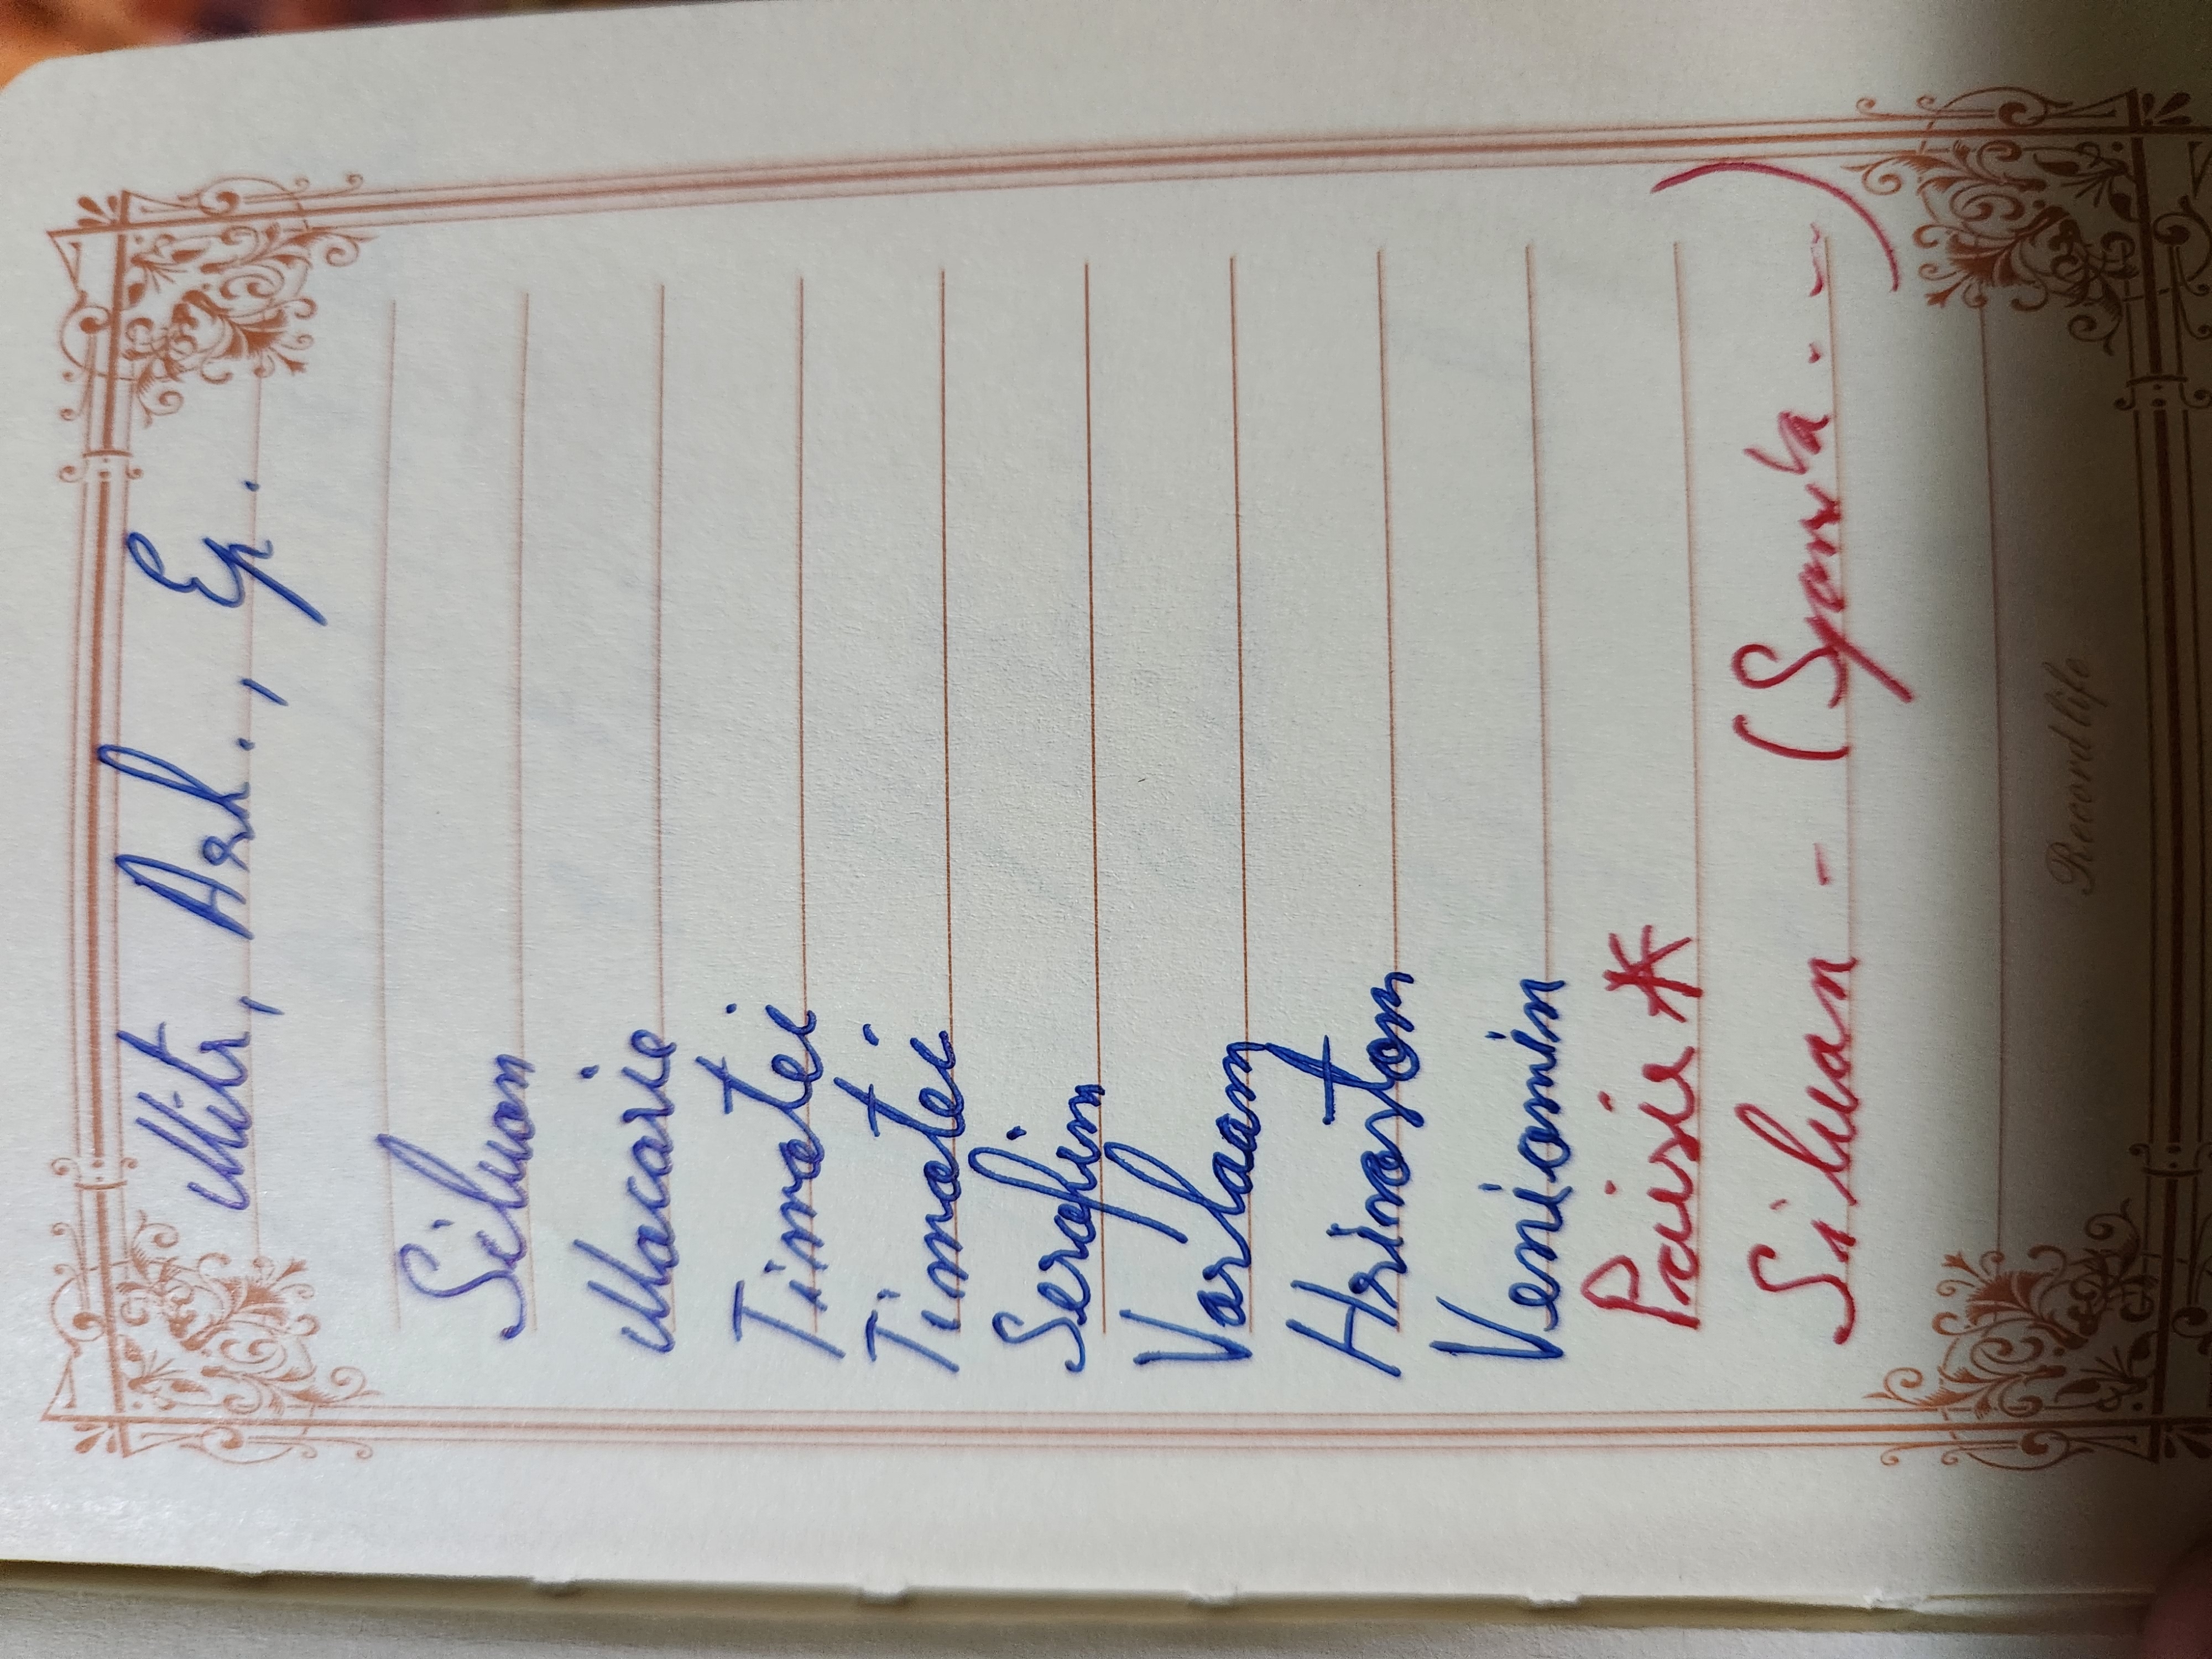 Mitr, Arh., Ep.
Siluan
Macarie
Timotei
Timotei
Serafim
Varlaam
Hrisostom
Veniamin
Paisie *
Siluan - (Spania. -)
Record life